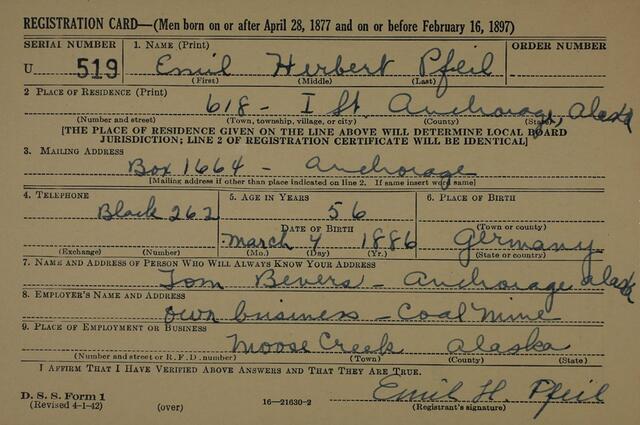 REGISTRATION CARD—(Men born on or after April 28, 1877 and on or before February 16, 1897)
SERIAL NUMBER 1. NAME (Print) ORDER NUMBER
U 519 Emil Herbert Pfeil
(First) (Middle) (Last)
2 PLACE OF RESIDENCE (Print)
618 - I St. Anchorage, Alaska
(Number and street) (Town, township, village, or city) (County) (State)
[THE PLACE OF RESIDENCE GIVEN ON THE LINE ABOVE WILL DETERMINE LOCAL BOARD
JURISDICTION; LINE 2 OF REGISTRATION CERTIFICATE WILL BE IDENTICAL]
3. MAILING ADDRESS
Box 1664 - Anchorage
[Mailing address if other than place indicated on line 2. If same insert word same]
4. TELEPHONE 5. AGE IN YEARS 6. PLACE OF BIRTH
Black 262 56
DATE OF BIRTH (Town or county)
March 4 1886 Germany
(Exchange) (Number) (Mo.) (Day) (Yr.) (State or country)
7. NAME AND ADDRESS OF PERSON WHO WILL ALWAYS KNOW YOUR ADDRESS
Tom Bevers - Anchorage Alaska
8. EMPLOYER'S NAME AND ADDRESS
own business - Coal Mine
9. PLACE OF EMPLOYMENT OR BUSINESS
Moose Creek Alaska
(Number and street or R. F. D. number) (Town) (County) (State)
I AFFIRM THAT I HAVE VERIFIED ABOVE ANSWERS AND THAT THEY ARE TRUE.
Emil H. Pfeil
D. S. S. Form 1
(Revised 4-1-42) (over) 16—21630-2 (Registrant's signature)